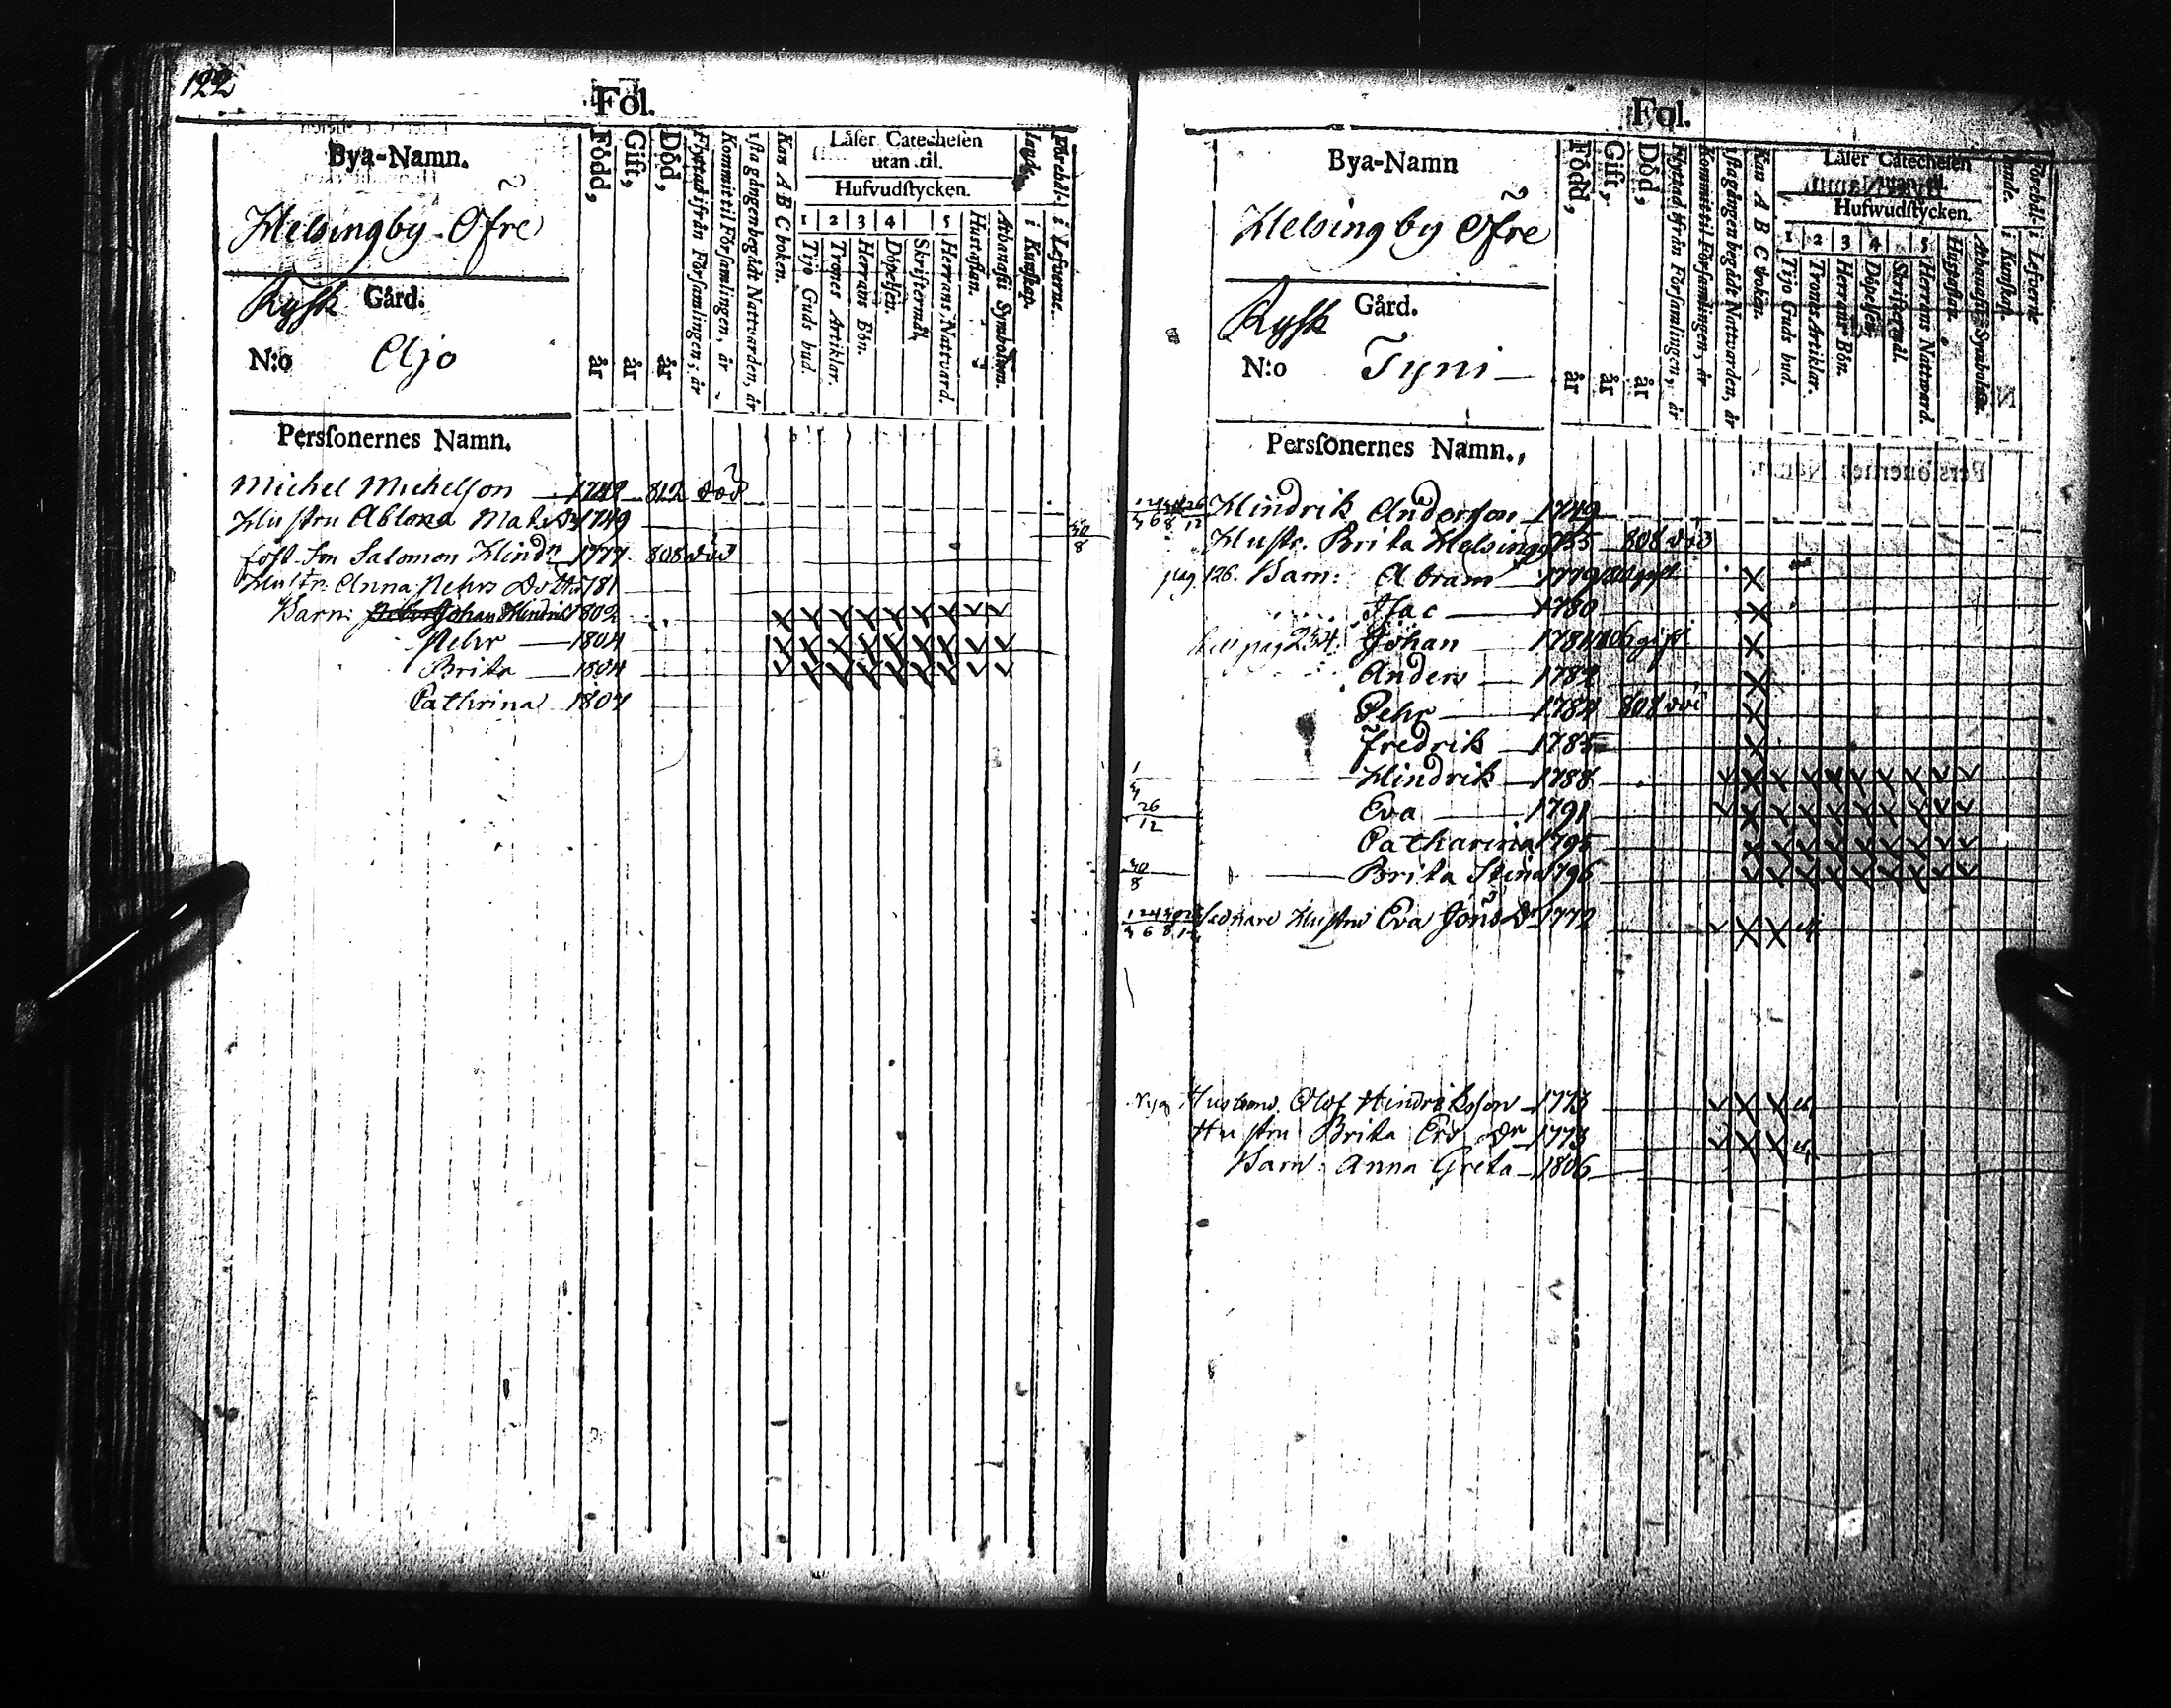 122
Fol.
Bya-Namn.
Helsingby-Öfre
Rysk Gård.
N:o Ajo
Född, år
Gift, år
Död, år
Flyttad ifrån Församlingen, år
Kommit til Församlingen, år
1sta gången begådt Nattvarden, år
Kan A B C boken.
Låser Catechesen
utan til.
Hufvudstycken.
1 2 3 4 5
Tijo Guds bud.
Trones Artiklar.
Herrans Bön.
Döpelsen.
Skriftermål.
Herrans Nattvard.
Hustaflan.
Athanasii Symbolum.
i Kunskap.
i Lefverne.
Personernes Namn.
Michel Michelson 1748 812 död
Hustru Ablona Mats Dr 1749
Son Salomon Hindr 1777 808 död
Hustr. Anna Pehrs Dotter 1781
Barn: Johan Hindric 1802
Pehr 1804
Brita 1804
Cathrina 1807
30
8
Fol.
Bya-Namn
Helsingby Öfre
Rysk Gård.
N:o Tyni
Född, år
Gift, år
Död, år
Flyttad ifrån Församlingen, år
Kommit til Församlingen, år
1sta gången begådt Nattvarden, år
Kan A B C boken.
Låser Catechesen
utan til.
Hufwudstycken.
1 2 3 4 5
Tijo Guds bud.
Trones Artiklar.
Herrans Bön.
Döpelsen.
Skriftermål.
Herrans Nattward.
Hustaflan.
Athanasii Symbolum.
i Kunskap.
i Lefverne
Personernes Namn.
Hindrik Anderson 1749
Hustr. Brita Helsing 1755 808 död
pag. 126. Barn: Abram 1779 gift
Isac 1780
pag 254. Johan 1781 806 gift
Anders 1782
Pehr 1784 808 död
Fredrik 1785
Hindrik 1788
26
12
Eva 1791
Catharina 1795
30
8
Brita Stina 1796
Sednare Hustru Eva Jons Dr 1772
Olof Hindrikson 1773
Hustru Brita Ers Dr 1773
Barn: Anna Greta 1806